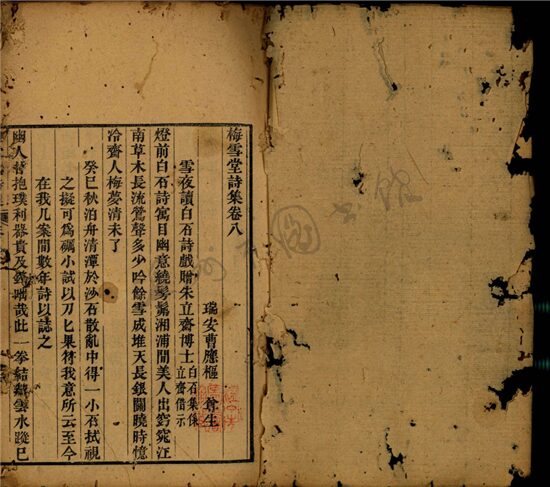 梅雪堂詩集卷八
瑞安曹應樞 尊生
雪夜讀白石詩戲贈朱立齋博士 白石集係立齋借示
燈前白石詩寓目幽意繞髣髴湘浦間美人出窈窕江
南草木長流鶯聲多少吟餘雪成堆天長銀闕曉時憶
冷齋人梅夢清未了
癸巳秋泊舟清潭於沙石散亂中得一小石拭視
之擬可為礪小試以刀匕果符我意所云至今
在我几案間數年詩以誌之
幽人昔抱璞利器貴及鋒咄哉此一拳結鄰雲水蹤已